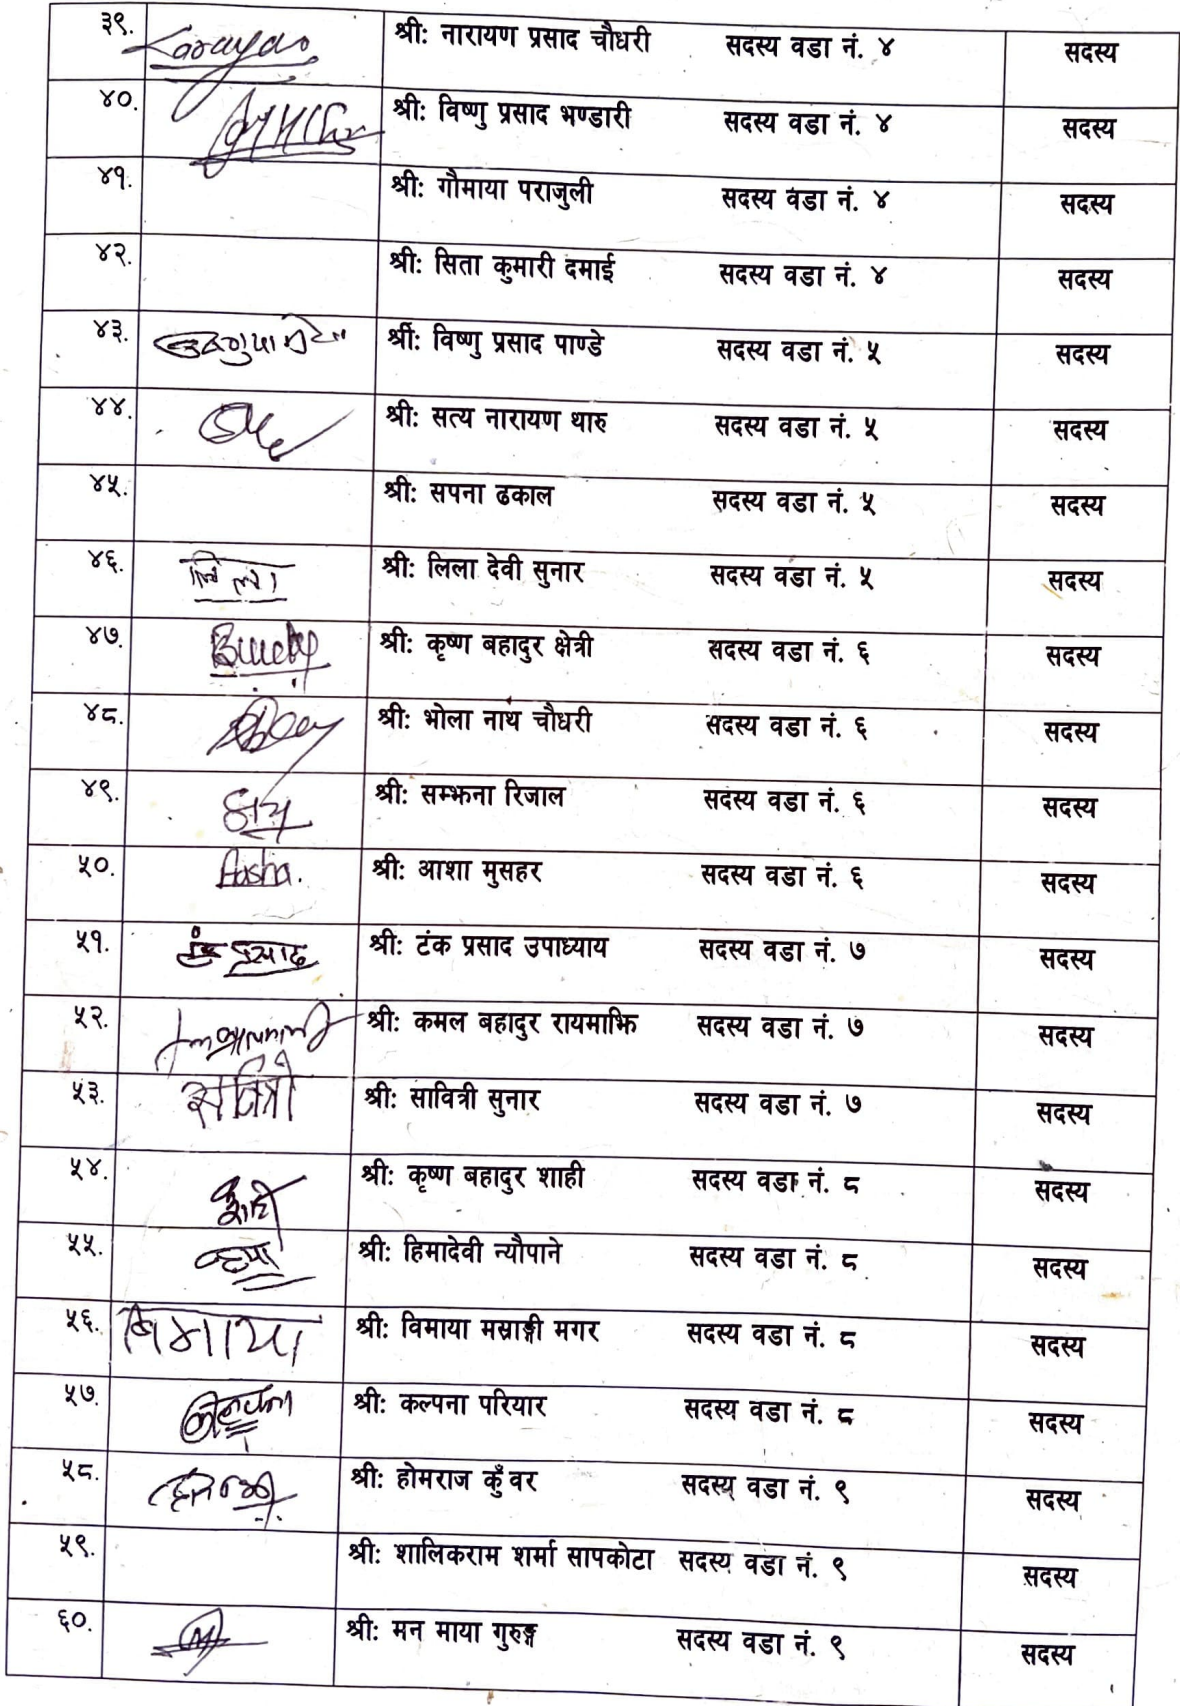 ३९. Narayan श्री: नारायण प्रसाद चौधरी सदस्य वडा नं. ४ सदस्य
४०. श्री: विष्णु प्रसाद भण्डारी सदस्य वडा नं. ४ सदस्य
४१. श्री: गौमाया पराजुली सदस्य वडा नं. ४ सदस्य
४२. श्री: सिता कुमारी दमाई सदस्य वडा नं. ४ सदस्य
४३. श्री: विष्णु प्रसाद पाण्डे सदस्य वडा नं. ५ सदस्य
४४. श्री: सत्य नारायण थारु सदस्य वडा नं. ५ सदस्य
४५. श्री: सपना ढकाल सदस्य वडा नं. ५ सदस्य
४६. लिला श्री: लिला देवी सुनार सदस्य वडा नं. ५ सदस्य
४७. श्री: कृष्ण बहादुर क्षेत्री सदस्य वडा नं. ६ सदस्य
४८. श्री: भोला नाथ चौधरी सदस्य वडा नं. ६ सदस्य
४९. श्री: सम्झना रिजाल सदस्य वडा नं. ६ सदस्य
५०. Aasha. श्री: आशा मुसहर सदस्य वडा नं. ६ सदस्य
५१. टंक प्रसाद श्री: टंक प्रसाद उपाध्याय सदस्य वडा नं. ७ सदस्य
५२. श्री: कमल बहादुर रायमाझि सदस्य वडा नं. ७ सदस्य
५३. सवित्री श्री: सावित्री सुनार सदस्य वडा नं. ७ सदस्य
५४. श्री: कृष्ण बहादुर शाही सदस्य वडा नं. ८ सदस्य
५५. श्री: हिमादेवी न्यौपाने सदस्य वडा नं. ८ सदस्य
५६. बिमाया श्री: विमाया मस्राङ्गी मगर सदस्य वडा नं. ८ सदस्य
५७. श्री: कल्पना परियार सदस्य वडा नं. ८ सदस्य
५८. श्री: होमराज कुँवर सदस्य वडा नं. ९ सदस्य
५९. श्री: शालिकराम शर्मा सापकोटा सदस्य वडा नं. ९ सदस्य
६०. श्री: मन माया गुरुङ्ग सदस्य वडा नं. ९ सदस्य